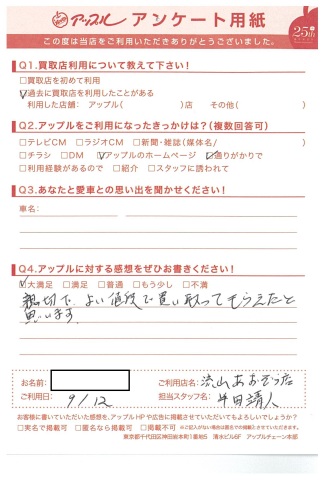 アップル アンケート用紙
25th
この度は当店をご利用いただきありがとうございました。
Q1.買取店利用について教えて下さい!
□買取店を初めて利用
☑過去に買取店を利用したことがある
利用した店舗: アップル( )店 その他( )
Q2.アップルをご利用になったきっかけは?(複数回答可)
□テレビCM □ラジオCM □新聞・雑誌(媒体名/ )
□チラシ □DM ☑アップルのホームページ ☑通りがかりで
□利用経験があるので □紹介 □スタッフに誘われて
Q3.あなたと愛車との思い出を聞かせください!
車名:
Q4.アップルに対する感想をぜひお書きください!
☑大満足 □満足 □普通 □もう少し □不満
親切で、よい値段で買い取ってもらえたと
思います
お名前: ご利用店名: 流山あおぞら店
ご利用日: 9/12 担当スタッフ名: 半田靖人
お客様に書いていただいた感想を、アップルHPや広告に掲載させていただいてもよろしいでしょうか?
□実名で掲載可 □匿名なら掲載可 □掲載不可 ※ご記入がない場合は匿名での掲載とさせていただきます。
東京都千代田区神田岩本町1番地5 清水ビル6F アップルチェーン本部